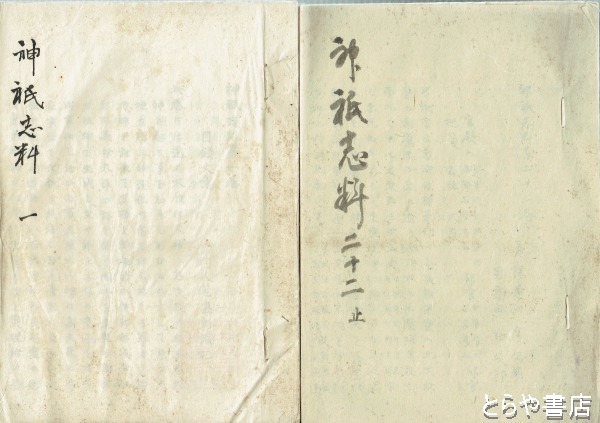 神祇志料 一
神祇志料二十二 止
とらや書店